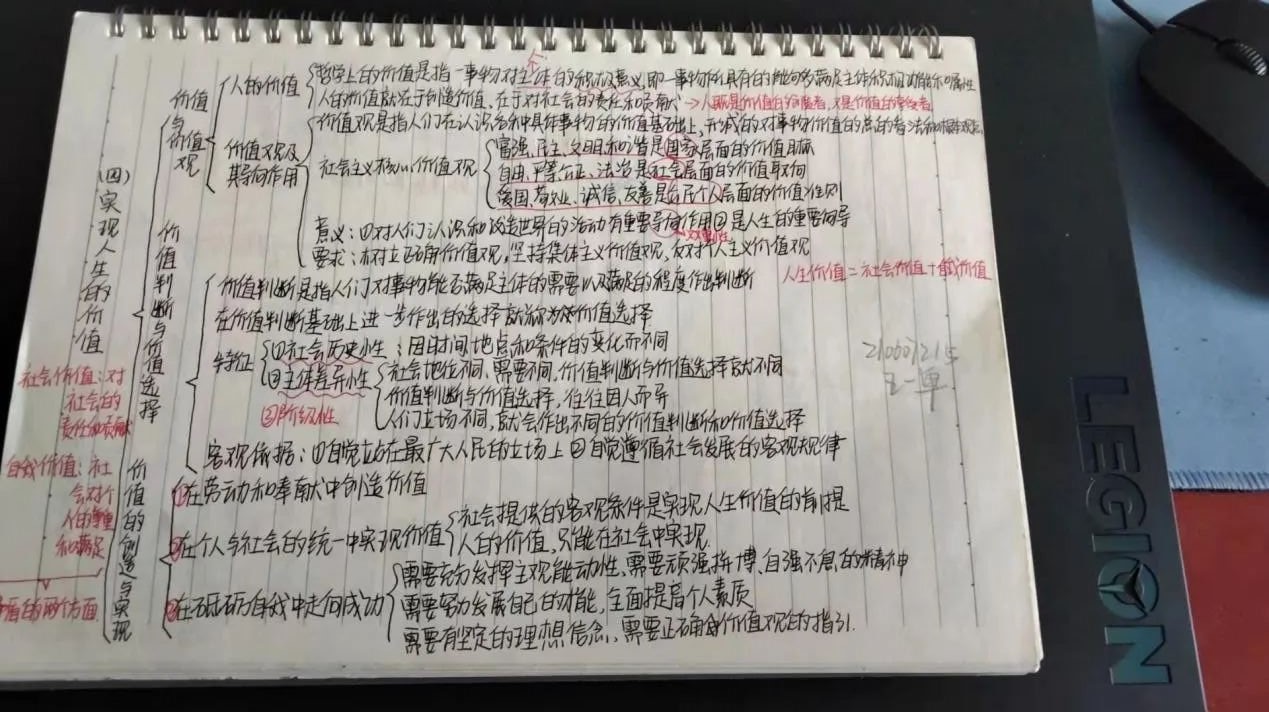 (四)实现人生的价值
价值与价值观
人的价值
哲学上的价值是指一事物对主体的积极意义,即一事物所具有的能够满足主体积极功能和属性
人的价值就在于创造价值、在于对社会的责任和贡献→人既是价值的创造者,又是价值的享受者
价值观及其导向作用
价值观是指人们在认识各种具体事物的价值基础上,形成的对事物价值的总的看法和根本观点
社会主义核心价值观
富强、民主、文明、和谐是国家层面的价值目标
自由、平等、公正、法治是社会层面的价值取向
爱国、敬业、诚信、友善是公民个人层面的价值准则
意义:①对人们认识和改造世界的活动有重要导向作用②是人生的重要向导
双重性
要求:树立正确价值观,坚持集体主义价值观,反对个人主义价值观
人生价值=社会价值+自我价值
价值判断与价值选择
价值判断是指人们对事物能否满足主体的需要以及满足的程度作出判断
在价值判断基础上进一步作出的选择就称为价值选择
特征
①社会历史性:因时间、地点和条件的变化而不同
②主体差异性
社会地位不同、需要不同,价值判断与价值选择就不同
价值判断与价值选择,往往因人而异
人们立场不同,就会作出不同的价值判断和价值选择
③阶级性
客观依据:①自觉站在最广大人民的立场上②自觉遵循社会发展的客观规律
价值的创造与实现
①在劳动和奉献中创造价值
②在个人与社会的统一中实现价值
社会提供的客观条件是实现人生价值的前提
人的价值,只能在社会中实现
③在砥砺自我中走向成功
需要充分发挥主观能动性,需要顽强拼搏、自强不息的精神
需要努力发展自己的才能,全面提高个人素质
需要有坚定的理想信念,需要正确价值观的指引.
社会价值:对
社会的
责任和贡献
自我价值:社
会对个
人的尊重
和满足
盾的两个方面
王一单
LEGION